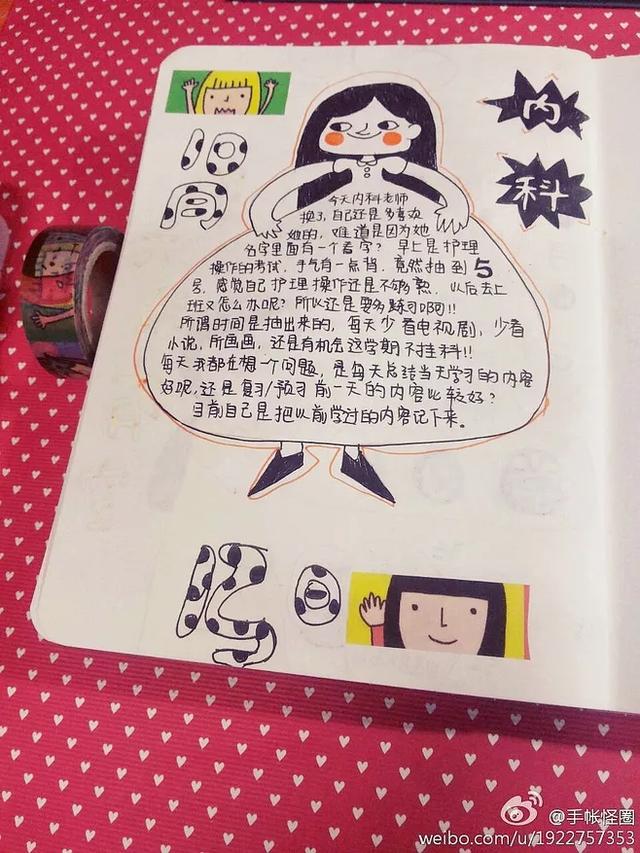 10
月
内
科
今天内科老师
换了,自己还是多喜欢
她的,难道是因为她
名字里面有一个春字?早上是护理
操作的考试,手气有一点背,竟然抽到5
号,感觉自己护理操作还是不够熟,以后去上
班又怎么办呢?所以还是要多练习啊!!
所谓时间是抽出来的,每天少看电视剧,少看
小说,所画画,还是有机会这学期不挂科!!
每天我都在想一个问题,是每天总结当天学习的内容
好呢,还是复习/预习前一天的内容比较好?
目前自己是把以前学过的内容记下来。
日
@手帐怪圈
weibo.com/u/1922757353